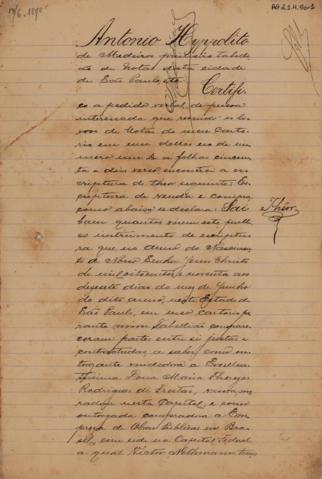 17/6 1890
Antonio Hyppolito
de Medeiros primeiro tabel-
ião de Notas desta cidade
de São Paulo, etc.
Certifi-
co a pedido verbal de pessoa
interessada que revendo os li-
vros de Notas do meu Carto-
rio em um delles no de nu-
mero um á folhas cincoen-
ta e dois verso encontrei a es-
criptura do theor seguinte: Es-
criptura de venda e compra
como abaixo se declara: Sai-
bam quantos virem este publi-
co instrumento de escriptu-
ra que no anno do Nascimen-
to de Nosso Senhor Jesus Christo
de mil oitocentos e noventa aos
desesete dias do mez de Junho
do dito anno, neste Estado de
São Paulo, em meu cartorio pe-
rante mim tabellião compare-
ceram partes entre si justas e
contractadas, a saber, como ou-
torgante vendedora a Excellen-
tissima Dona Maria Thereza
Rodrigues de Freitas, mo-
radora nesta Capital, e como
outorgada compradora a Em-
preza de Obras Publicas no Bra-
sil, com séde na Capital Federal
a qual Victor Nothmann
Théor